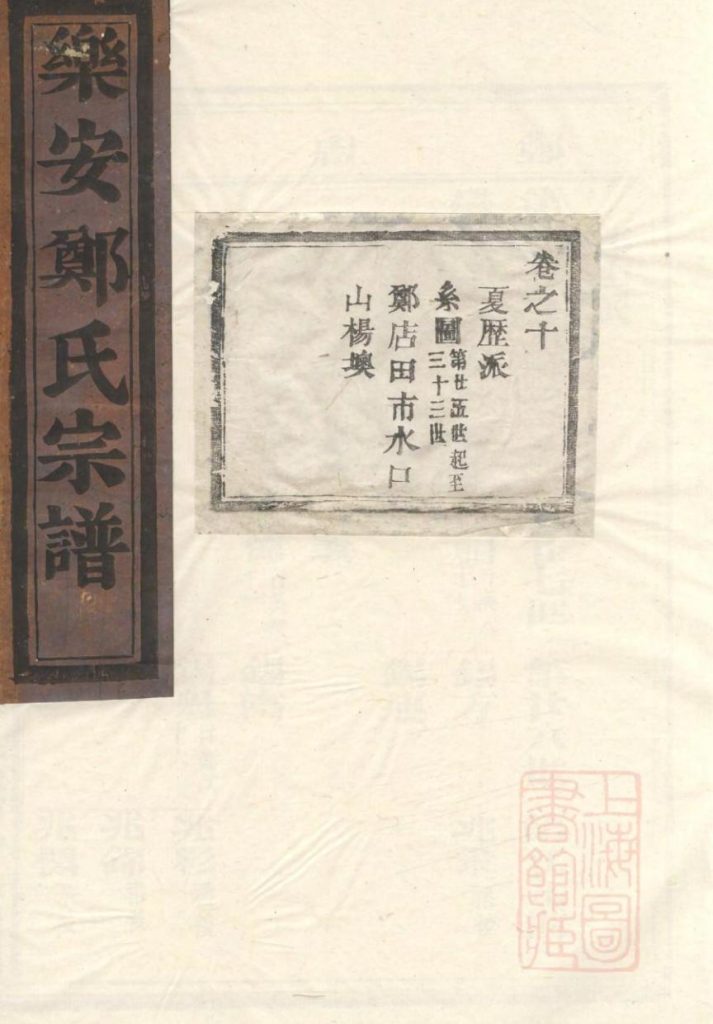 樂安鄭氏宗譜
卷之十
夏歷派
系圖第廿五世起至
三十三世
鄭店田市水口
山楊墺
上海圖
書館藏